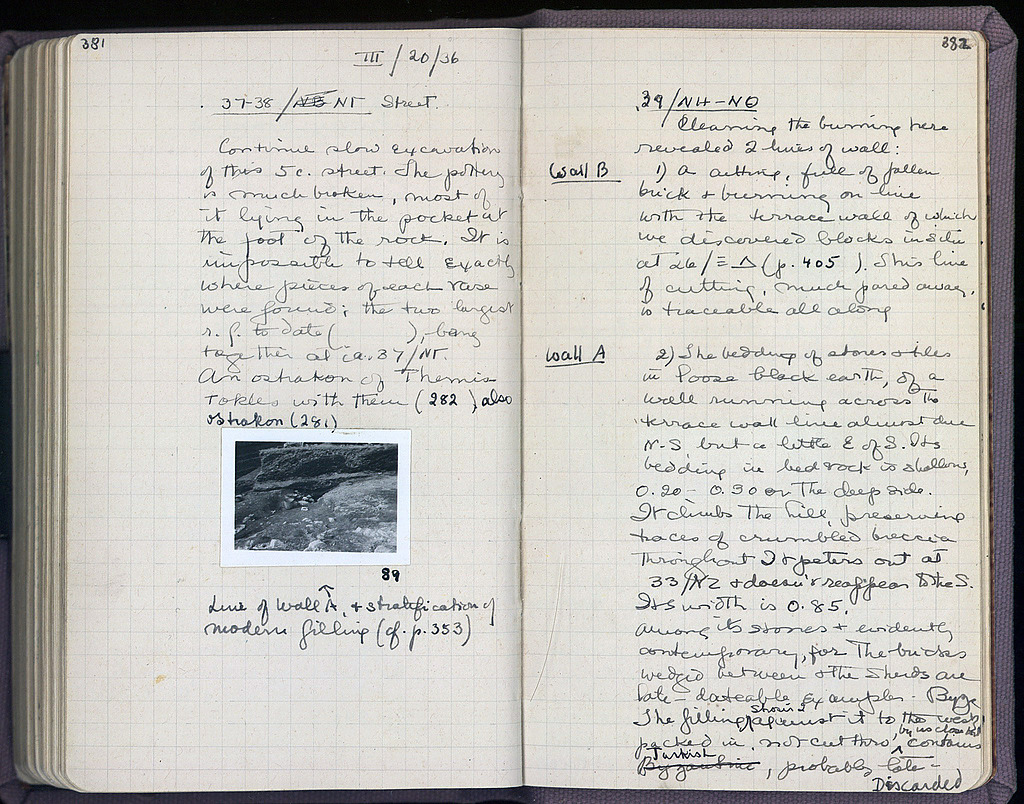 381
III / 20/36
37-38 / NT Street.
Continue slow excavation
of this 5 c. street. The pottery
is much broken, most of
it lying in the pocket at
the foot of the rock. It is
impossible to tell exactly
where pieces of each vase
were found; the two largest
r. f. to date ( ), being
together at ca. 37/NT.
An ostrakon of Themis
tokles with them (282), also
ostrakon (281)
89
Line of Wall A, + stratification of
modern filling (cf. p. 353)
382
39/NH-NO
Cleaning the burning here
revealed 2 lines of wall:
Wall B
1) a cutting, full of fallen
brick + burning on line
with the terrace wall of which
we discovered blocks in situ
at 26/Ξ Δ (p. 405). This line
of cutting, much pared away,
is traceable all along
Wall A
2) The bedding of stones + tiles
in loose black earth, of a
wall running across the
terrace wall line almost due
N-S, but a little E of S. Its
bedding in bedrock is shallow,
0.20 - 0.30 on the deep side.
It climbs the hill, preserving
traces of crumbled breccia
throughout + peters out at
33/NZ + doesn't reappear to the S.
Its width is 0.85.
Among its stones + evidently
contemporary, for the bricks
wedged between + the sherds are
late - dateable examples - Byz
The filling shown against it to the west,
packed in, not cut thro, by us contains
Turkish, probably late -
Discarded